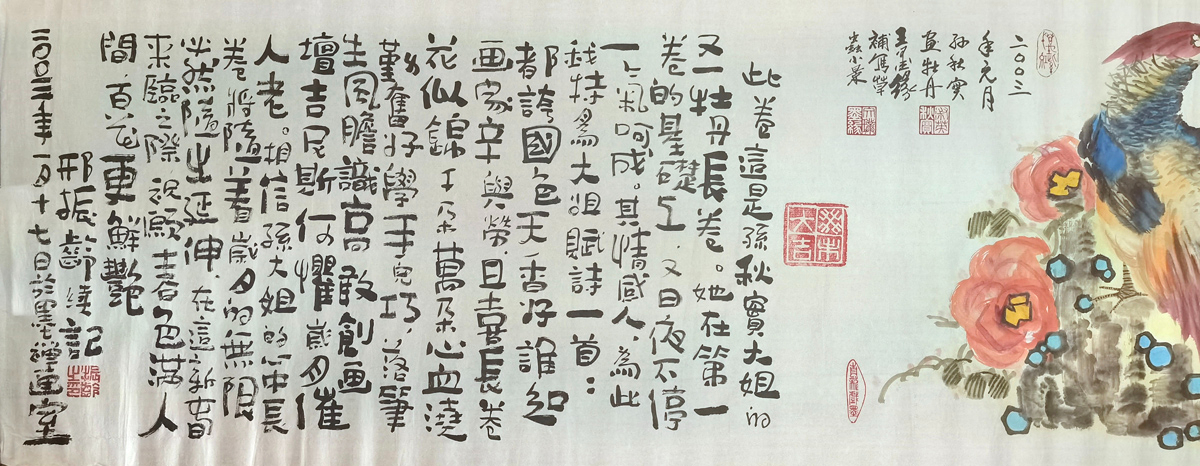 二〇〇三
年元月
孙秋实
画牡丹
补
小景
癸未大吉
此卷這是孫秋實大姐的
又一牡丹長卷。她在第一
卷的基礎上,又日夜不停
一氣呵成。其情感人、為此
我特為大姐賦詩一首:
都誇國色天香好誰知
畫家辛與勞,且喜長卷
花似錦千朵萬朵心血澆
勤奮好學手兒巧,落筆
生風膽識高敢創畫
壇吉尼斯何懼歲月催
人老。相信孫大姐的 長
卷將隨着歲月的無限
必然隨之延伸,在這新春
來臨之際祝願春色滿人
間,百花更鮮艷
邢振齡續記
二〇〇三年一月十七日於墨禅画室